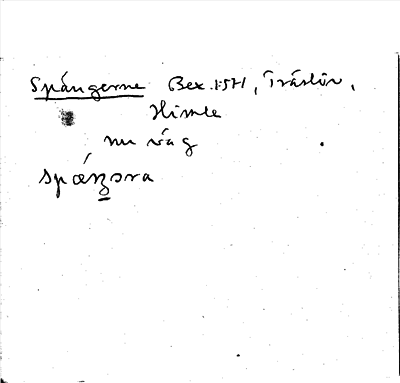 Spångerne Bex. 1:571, Träslöv,
Himle
nu väg